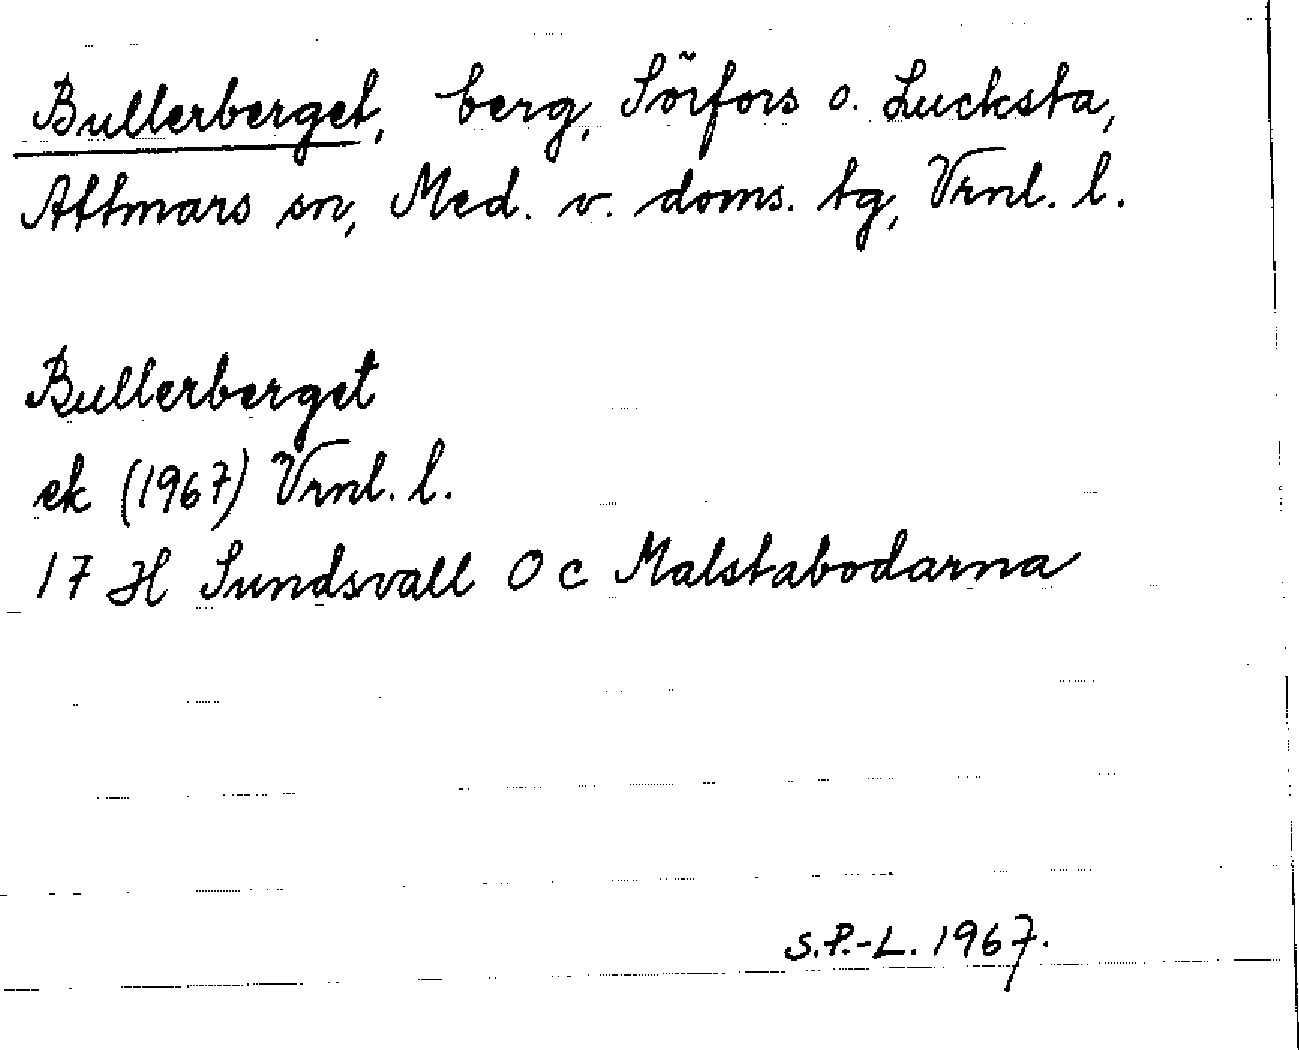 Bullerberget, berg, Sörfors o. Lucksta,
Attmars sn, Med. v. doms. tg, Vrnl. l.
Bullerberget
ek (1967) Vrnl. l.
17 H Sundsvall O c Malstabodarna
S.P.-L. 1967.